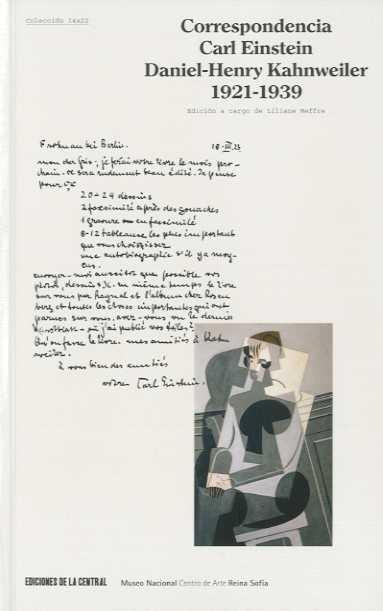 Colección 14x22
Correspondencia
Carl Einstein
Daniel-Henry Kahnweiler
1921-1939
Edición a cargo de Liliane Meffre
Frohnau bei Berlin. 18-III.23
mon cher Gris, je ferai votre livre le mois pro-
chain. ce sera rudement beau édité. Je pense
pour
20-24 dessins
2 facsimilé après des gouaches
1 gravure en facsimilé
8-12 tableaux les plus important
que vous choisissez
une autobiographie s'il y a moy-
en.
envoyer-moi aussitôt que possible vos
photos, dessins etc. en même temps le livre
sur vous par Raynal et l'album chez Rosen
berg et toutes les choses importantes qui ont
parues sur vous. avez-vous vu le dernier
où j'ai publié vos toiles?
faire le livre. mes amitiés à
weiler.
à vous bien des amitiés
votre Carl Einstein.
EDICIONES DE LA CENTRAL
Museo Nacional Centro de Arte Reina Sofía